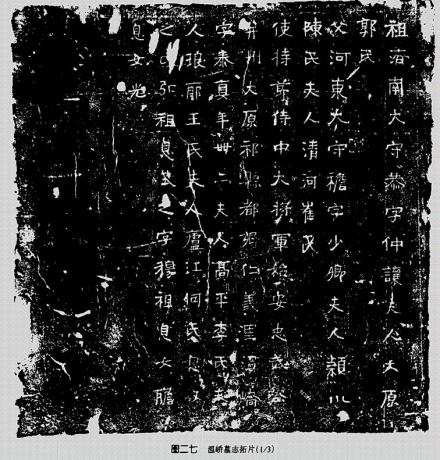 祖濟南太守恭字仲讓夫人太原
郭氏
父河東太守襜字少卿夫人潁川
陳氏夫人清河崔氏
使持節侍中大將軍始安忠武公
并州太原祁縣都鄉仁義里溫嶠
字泰真年卌二夫人高平李氏夫
人琅耶王氏夫人廬江何氏息放
之字弘祖息式之字穆祖息女膽
息女光
圖二七 温峤墓志拓片(1/3)